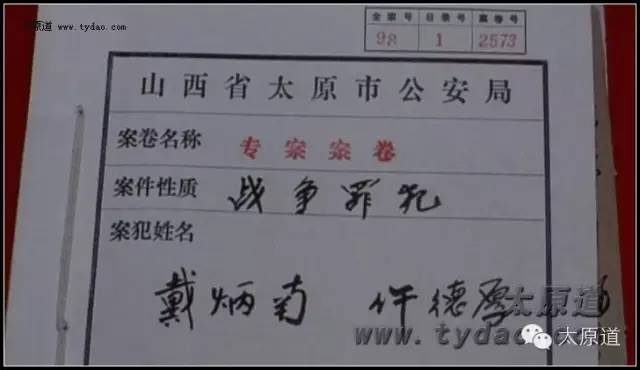 太原道 www.tydao.com
全宗号 目录号 案卷号
98 1 2573
山西省太原市公安局
案卷名称 专案案卷
案件性质 战争罪犯
案犯姓名
戴炳南 仵德厚
太原道
www.tydao.
太原道